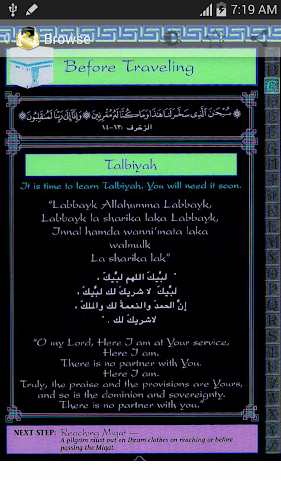 7:19 AM
Browse
Before Traveling
سُبْحَنَ الَّذِي سَخَّرَ لَنَا هَذَا وَمَا كُنَّا لَهُ مُقْرِنِينَ * وَإِنَّا إِلَى رَبِّنَا لَمُنقَلِبُونَ
الزخرف ١٣-١٤
Talbiyah
It is time to learn Talbiyah. You will need it soon.
"Labbayk Allahumma Labbayk,
Labbayk la sharika laka Labbayk,
Innal hamda wanni'mata laka
walmulk
La sharika lak"
" لبيك اللهم لبيك ،
لبيك لا شريك لك لبيك ،
إن الحمد والنعمة لك والملك ،
لاشريك لك . "
"O my Lord, Here I am at Your service,
Here I am.
There is no partner with You.
Here I am.
Truly, the praise and the provisions are Yours,
and so is the dominion and sovereignty.
There is no partner with you."
NEXT STEP: Reaching Miqat —
A pilgrim must put on Ihram clothes on reaching or before
passing the Miqat.